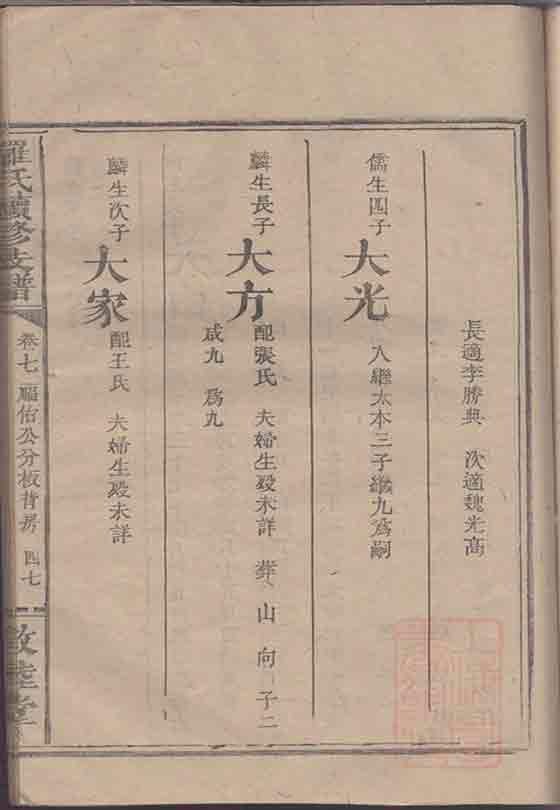 長適李勝典 次適魏光高
儒生四子 大光 入繼太本三子繼九爲嗣
麟生長子 大方 配張氏 夫婦生歿未詳 葬 山 向 子二
咸九 爲九
麟生次子 大家 配王氏 夫婦生歿未詳
羅氏續修支譜 卷七 福佑公分板背房 四七 敦睦堂